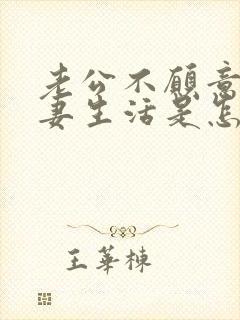 老公不愿意
妻生活是怎
王華棟